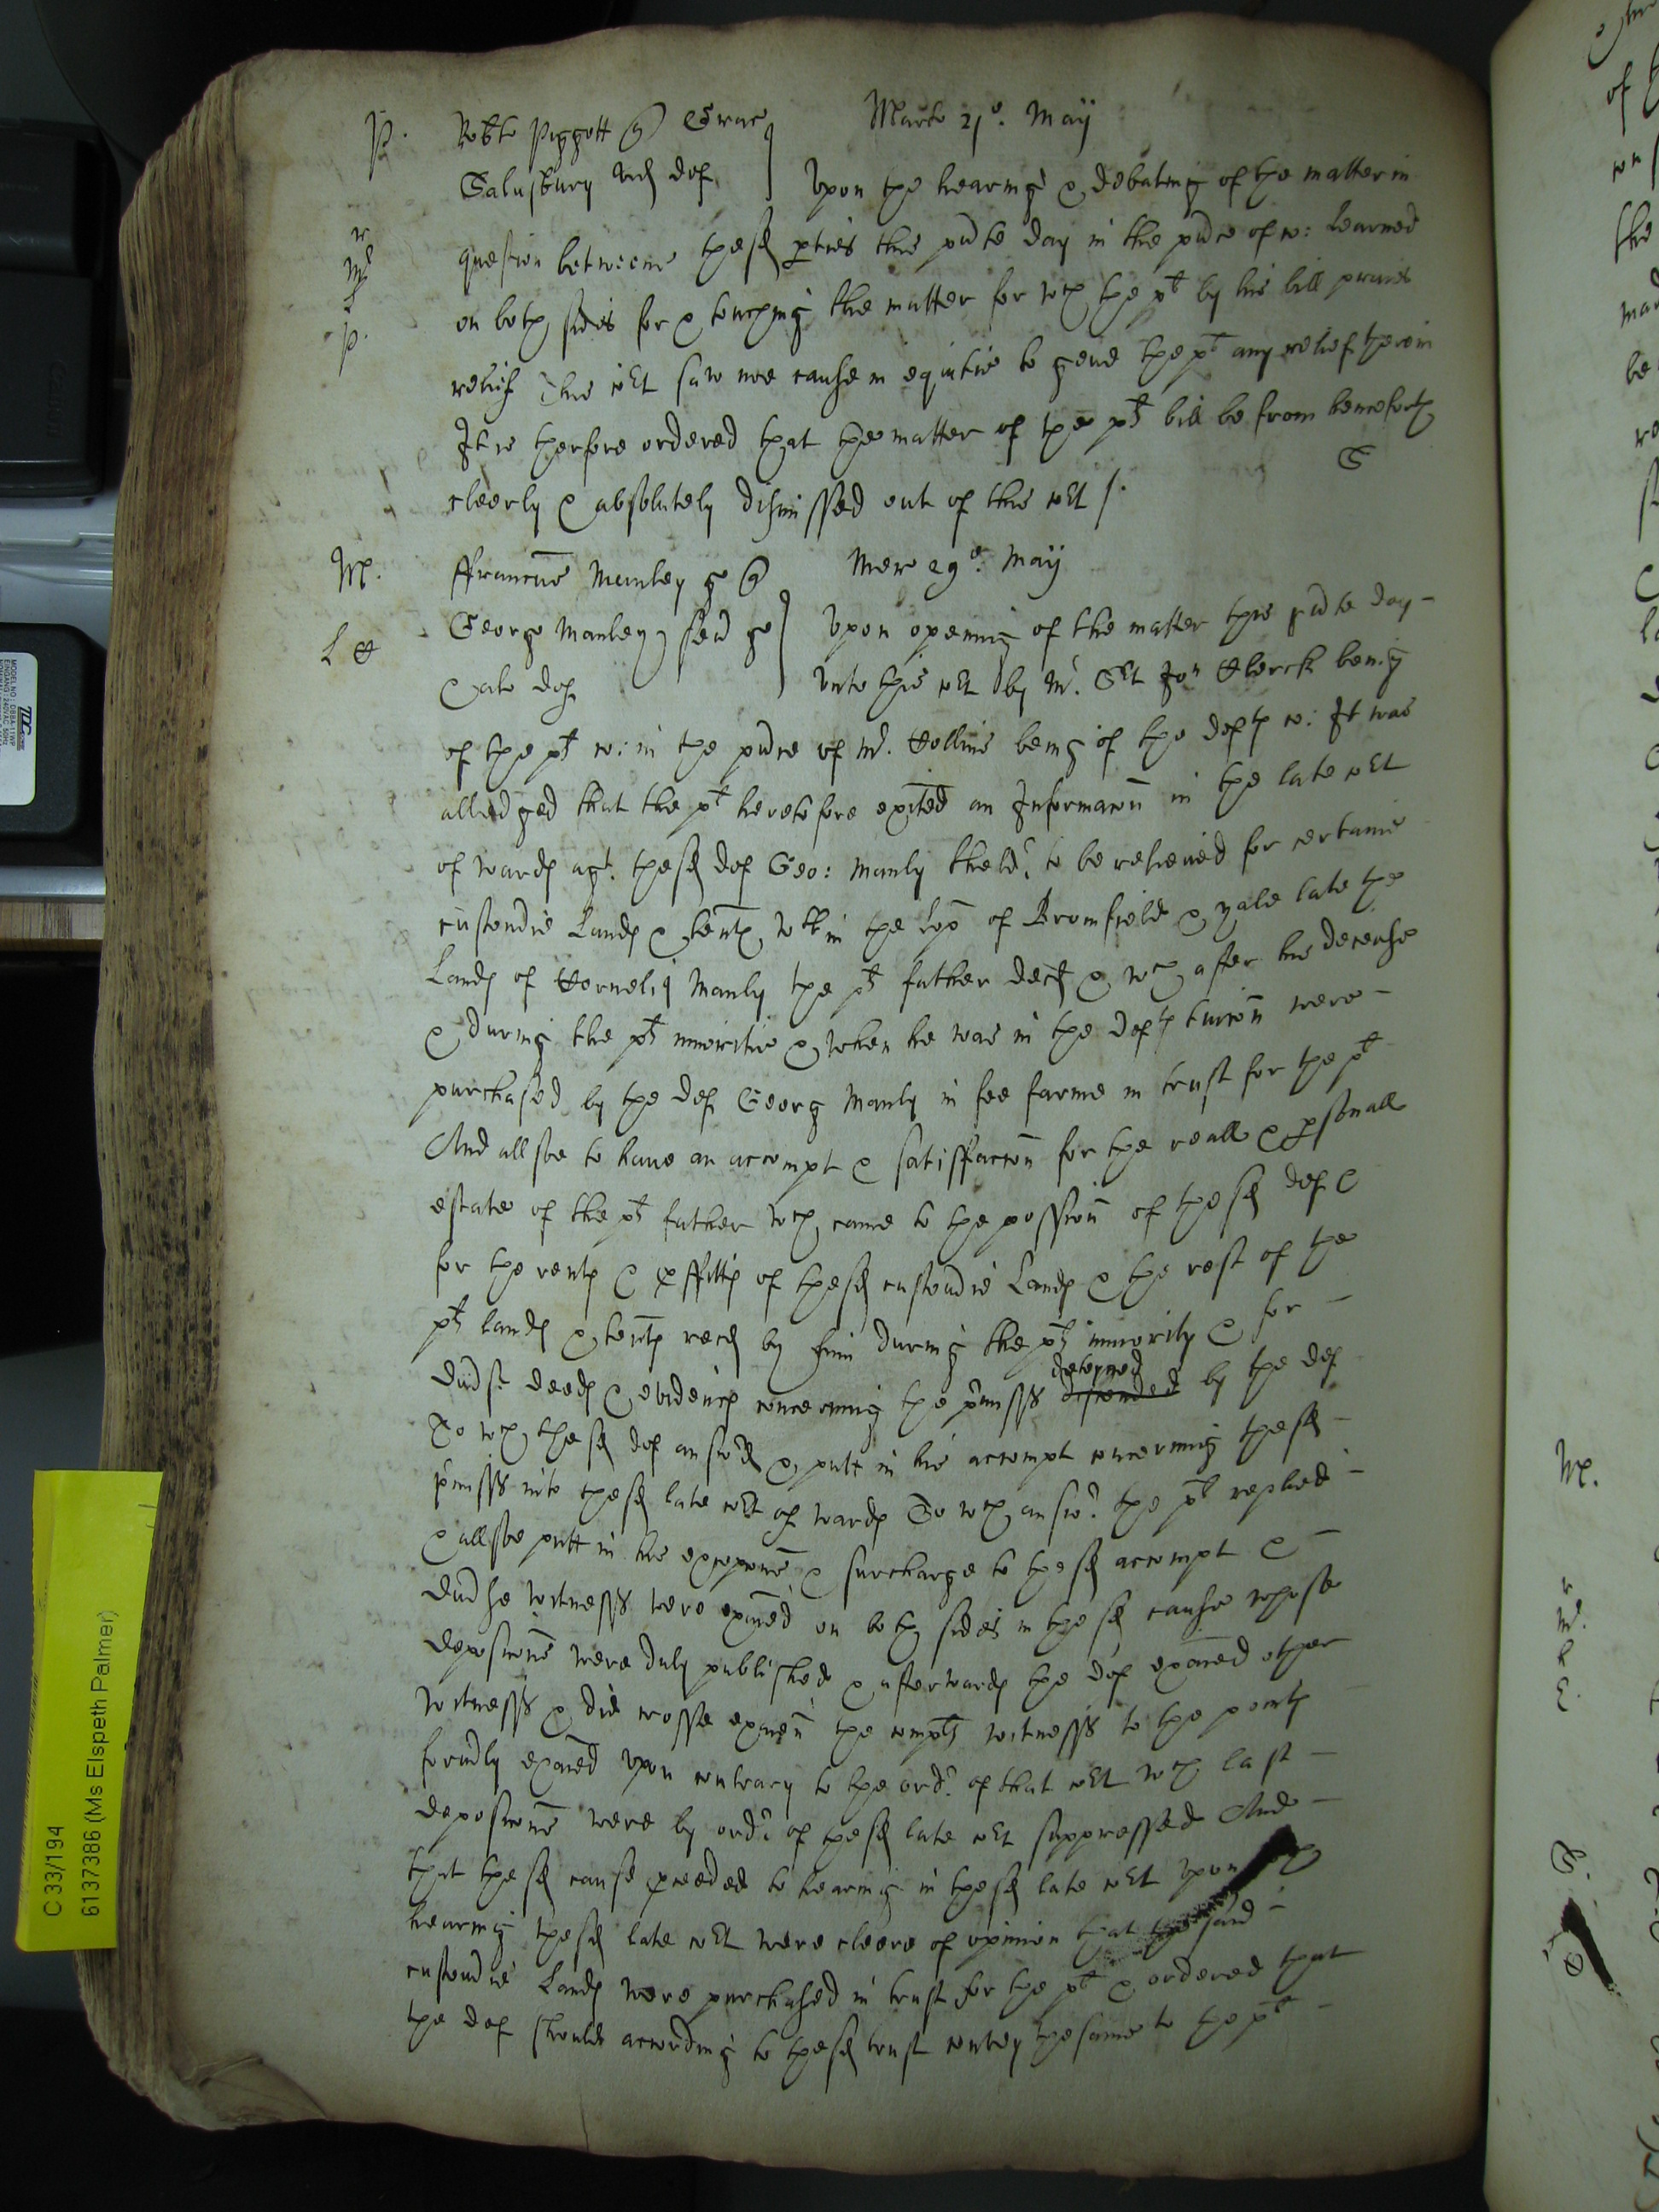 P. Robte Piggott q Grace Marte 21o. May
Salusbury vid def Upon the hearing & debating of the matter in
question betweene these pties this psnte day in the psnce of co: learned
on both sides for & touching the matter for wch the plt by his bill praies
releif this Cort saw noe cause in equitie to geve the plt any releif therein
It is therfore ordered that the matter of the plts bill be from henceforth
cleerly & absolutely dismissed out of this Cort /.
M. ffrancus Manley ge q Mer 29o. May
George Manley sen ge Upon opening of the matter this psnte day
& als def unto this Cort by Mr. Srt Jon Clerck being
of the plts co: in the psnce of Mr. Hollins being of the defts co: It was
alledged that the plt heretofore exited an Informacon in the late Cort
of wards agt. the sd def Geo: Manly thelder to be releived for certaine
custendie Lands & tents wthin the Lopp of Bromfield & Yale late the
Lands of Cornelius Manly the plts father decd & wch after his decease
& during the plts minoritie & when he was in the defts tuicon were
purchased by the def Georg Manly in fee farme in trust for the plt
And allsoe to have an accompt & satisfaccon for the reall & psonall
estate of the plts father wch came to the possession of the sd def &
for the rents & pffitts of the sd custendie Lands & the rest of the
plts lands & tents recd by him during the plts minority & for
divse deeds & evidences concerning the pmisss descended deteyned by the def
To wch the sd def answed & putt in his accompt concerning the sd
pmisss into the sd late Cort of wards To wch answr the plt replied
& allsoe putt in his excepcons & surcharge to the sd accompt &
divse witnesss were exned on both sides in the sd cause whose
deposicons were duly published & afterwards the def exned other
witnesss & did crosse exmen the complts witnesss to the points
formly exned upon contrary to the ordr of that Cort wch last
deposicons were by ordr of the sd late Cort suppressed And
that the sd cause pceeded to hearing in the sd late Cort upon wch
hearing the sd late Cort were cleere of opinion that the said
custendie Lands were purchased in trust for the plt & ordered that
the def should according to the sd trust convey the same to the plt
C 33/194
61373786 (Ms Elspeth Palmer)